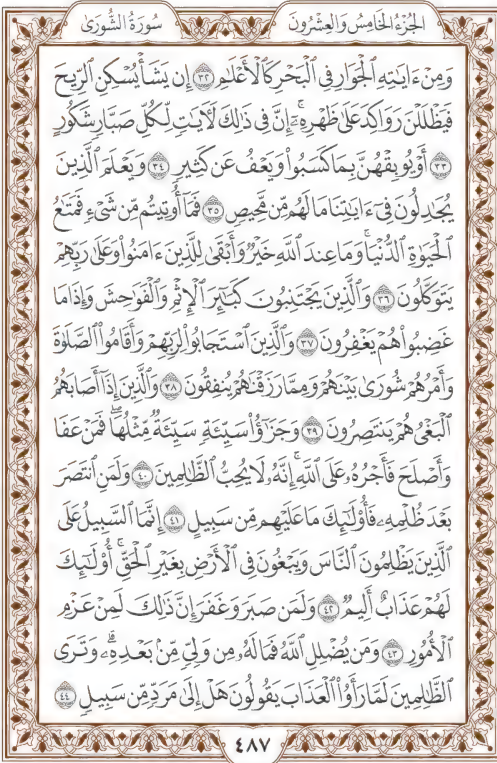 سُورَةُ الشُّورَىٰ
الجُزْءُ الخَامِسُ وَالعِشْرُونَ
وَمِنْ ءَايَٰتِهِ ٱلْجَوَارِ فِي ٱلْبَحْرِ كَٱلْأَعْلَٰمِ ٣٢ إِن يَشَأْ يُسْكِنِ ٱلرِّيحَ
فَيَظْلَلْنَ رَوَاكِدَ عَلَىٰ ظَهْرِهِۦٓ ۚ إِنَّ فِي ذَٰلِكَ لَءَايَٰتٍ لِّكُلِّ صَبَّارٍ شَكُورٍ
٣٣ أَوْ يُوبِقْهُنَّ بِمَا كَسَبُوا۟ وَيَعْفُ عَن كَثِيرٍ ٣٤ وَيَعْلَمَ ٱلَّذِينَ
يُجَٰدِلُونَ فِىٓ ءَايَٰتِنَا مَا لَهُم مِّن مَّحِيصٍ ٣٥ فَمَآ أُوتِيتُم مِّن شَىْءٍ فَمَتَٰعُ
ٱلْحَيَوٰةِ ٱلدُّنْيَا ۖ وَمَا عِندَ ٱللَّهِ خَيْرٌ وَأَبْقَىٰ لِلَّذِينَ ءَامَنُوا۟ وَعَلَىٰ رَبِّهِمْ
يَتَوَكَّلُونَ ٣٦ وَٱلَّذِينَ يَجْتَنِبُونَ كَبَٰٓئِرَ ٱلْإِثْمِ وَٱلْفَوَٰحِشَ وَإِذَا مَا
غَضِبُوا۟ هُمْ يَغْفِرُونَ ٣٧ وَٱلَّذِينَ ٱسْتَجَابُوا۟ لِرَبِّهِمْ وَأَقَامُوا۟ ٱلصَّلَوٰةَ
وَأَمْرُهُمْ شُورَىٰ بَيْنَهُمْ وَمِمَّا رَزَقْنَٰهُمْ يُنفِقُونَ ٣٨ وَٱلَّذِينَ إِذَآ أَصَابَهُمُ
ٱلْبَغْىُ هُمْ يَنتَصِرُونَ ٣٩ وَجَزَٰٓؤُا۟ سَيِّئَةٍ سَيِّئَةٌ مِّثْلُهَا ۖ فَمَنْ عَفَا
وَأَصْلَحَ فَأَجْرُهُۥ عَلَى ٱللَّهِ ۚ إِنَّهُۥ لَا يُحِبُّ ٱلظَّٰلِمِينَ ٤٠ وَلَمَنِ ٱنتَصَرَ
بَعْدَ ظُلْمِهِۦ فَأُو۟لَٰٓئِكَ مَا عَلَيْهِم مِّن سَبِيلٍ ٤١ إِنَّمَا ٱلسَّبِيلُ عَلَى
ٱلَّذِينَ يَظْلِمُونَ ٱلنَّاسَ وَيَبْغُونَ فِى ٱلْأَرْضِ بِغَيْرِ ٱلْحَقِّ ۚ أُو۟لَٰٓئِكَ
لَهُمْ عَذَابٌ أَلِيمٌ ٤٢ وَلَمَن صَبَرَ وَغَفَرَ إِنَّ ذَٰلِكَ لَمِنْ عَزْمِ
ٱلْأُمُورِ ٤٣ وَمَن يُضْلِلِ ٱللَّهُ فَمَا لَهُۥ مِن وَلِىٍّ مِّنۢ بَعْدِهِۦ ۗ وَتَرَى
ٱلظَّٰلِمِينَ لَمَّا رَأَوُا۟ ٱلْعَذَابَ يَقُولُونَ هَلْ إِلَىٰ مَرَدٍّ مِّن سَبِيلٍ ٤٤
٤٨٧